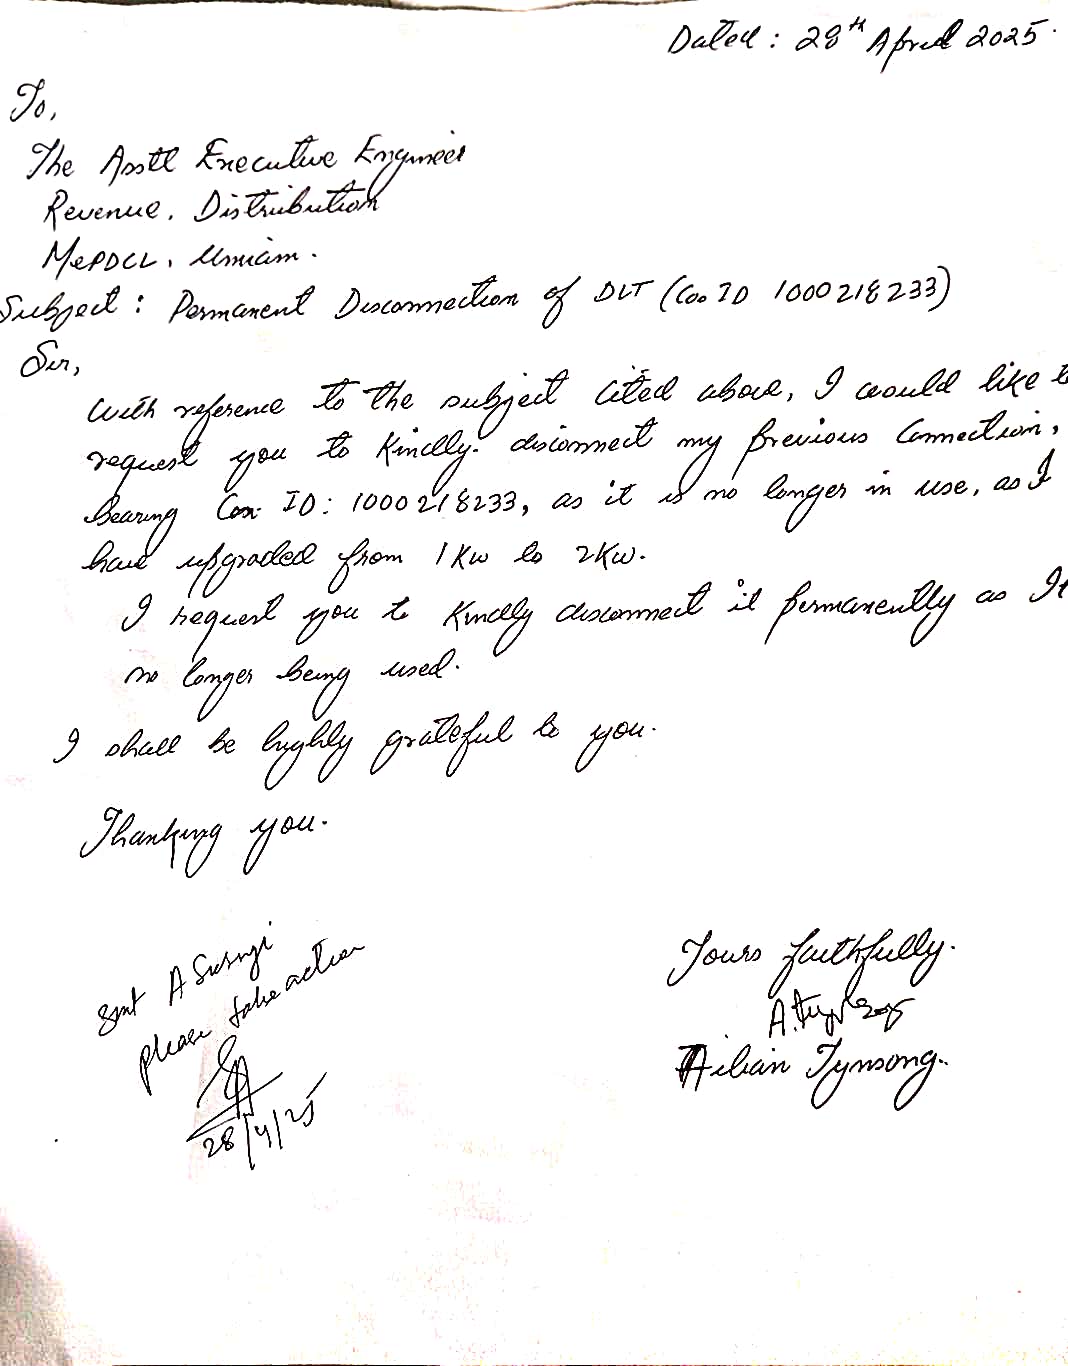 Dated : 28th April 2025.
To,
The Asstt Executive Engineer
Revenue, Distribution
MePDCL, Umiam.
Subject : Permanent Disconnection of DLT (Con ID 1000218233)
Sir,
With reference to the subject cited above, I would like to
request you to kindly disconnect my previous connection,
bearing Con ID: 1000218233, as it is no longer in use, as I
have upgraded from 1 Kw to 2 Kw.
I request you to kindly disconnect it permanently as It
no longer being used.
I shall be highly grateful to you.
Thanking you.
Yours faithfully.
Aibian Tynsong.
Smt A Surngi
please take action
28/4/25